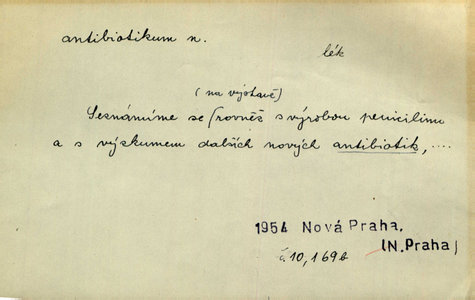 antibiotikum n.
lék
(na výstavě)
Seznámíme se (rovněž s výrobou penicilinu
a s výzkumem dalších nových antibiotik, ....
1954 Nová Praha,
(N.Praha)
č.10,169b